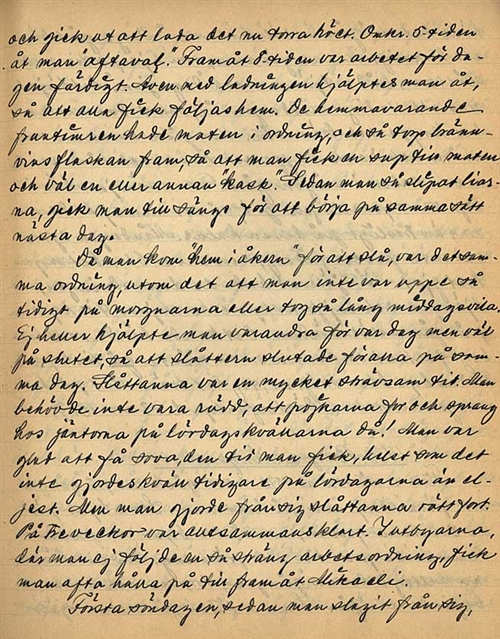 och gick ut att lada det nu torra höet. Omkr. 5-tiden
åt man "aftaval". Framåt 8-tiden var arbetet för da-
gen färdigt. Även med ladningen hjälptes man åt,
så att alla fick följas hem. De hemmavarande
fruntimren hade maten i ordning, och så togs bränn-
vinsflaskan fram, så att man fick en sup till maten
och väl en eller annan "kask". Sedan man så slipat liar-
na, gick man till sängs för att börja på samma sätt
nästa dag.
Då man kom "hem i åkern" för att slå, var det sam-
ma ordning, utom det att man inte var uppe så
tidigt på morgnarna eller tog så lång middagsvila.
Ej heller hjälpte man varandra för var dag men väl
på slutet, så att slåttern slutade för alla på sam-
ma dag. Slåttanna var en mycket strävsam tid. Man
behövde inte vara rädd, att pojkarna for och sprang
hos jäntorna på lördagskvällarna då! Man var
glad att få sova, den tid man fick, helst som det
inte gjordes kväll tidigare på lördagarna än el-
jest. Men man gjorde från sig slåttanna rätt fort.
På tre veckor var alltsammans klart. I utbyarna,
där man ej följde en så sträng arbetsordning, fick
man ofta hålla på till framåt Mikaeli.
Första söndagen, sedan man slagit från sig,